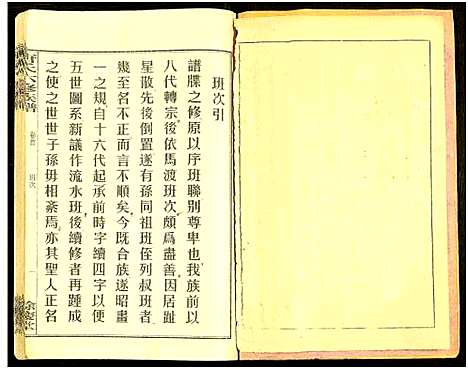 班次引
譜牒之修原以序班聯別尊卑也我族前以
八代轉宗後依馬渡班次頗爲盡善因居趾
星散先後倒置遂有孫同祖班侄列叔班者
幾至名不正而言不順矣今既合族遂昭畫
一之規自十六代起承前時字續四字以作
五世圖系新議作流水班後續修者再踵成
之使之世世子孫毋相紊焉亦其聖人正名
卷首
班次
一